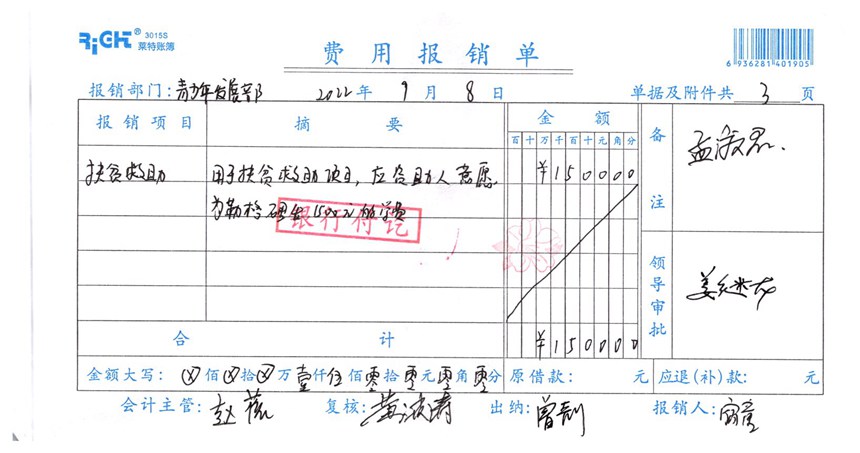 RiCHT® 3015S
莱特账簿
费用报销单
6 936281 401905
报销部门:青少年发展部 2022年9月8日 单据及附件共 3 页
报销项目 摘要 金额 备注
百十万千百十元角分
孟淑君
扶贫救助 用于扶贫救助项目,应资助人意愿 ¥150000
为勒格 1500元的学费
银行付讫
领导审批
合计 ¥150000
金额大写:ⓧ佰ⓧ拾ⓧ万壹仟伍佰零拾零元零角零分 原借款: 元 应退(补)款: 元
会计主管:赵薇 复核:黄波涛 出纳:曾利 报销人: